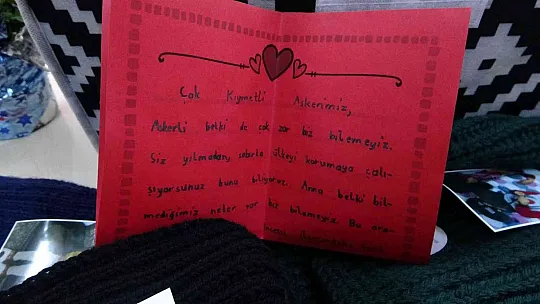 Çok Kıymetli Askerimiz,
Askerlik belki de çok zor biz bilemeyiz.
Siz yılmadan, sabırla ülkeyi korumaya çalı-
şıyorsunuz bunu biliyoruz. Ama belki bil-
mediğimiz neler var biz bilemeyiz. Bu ara-